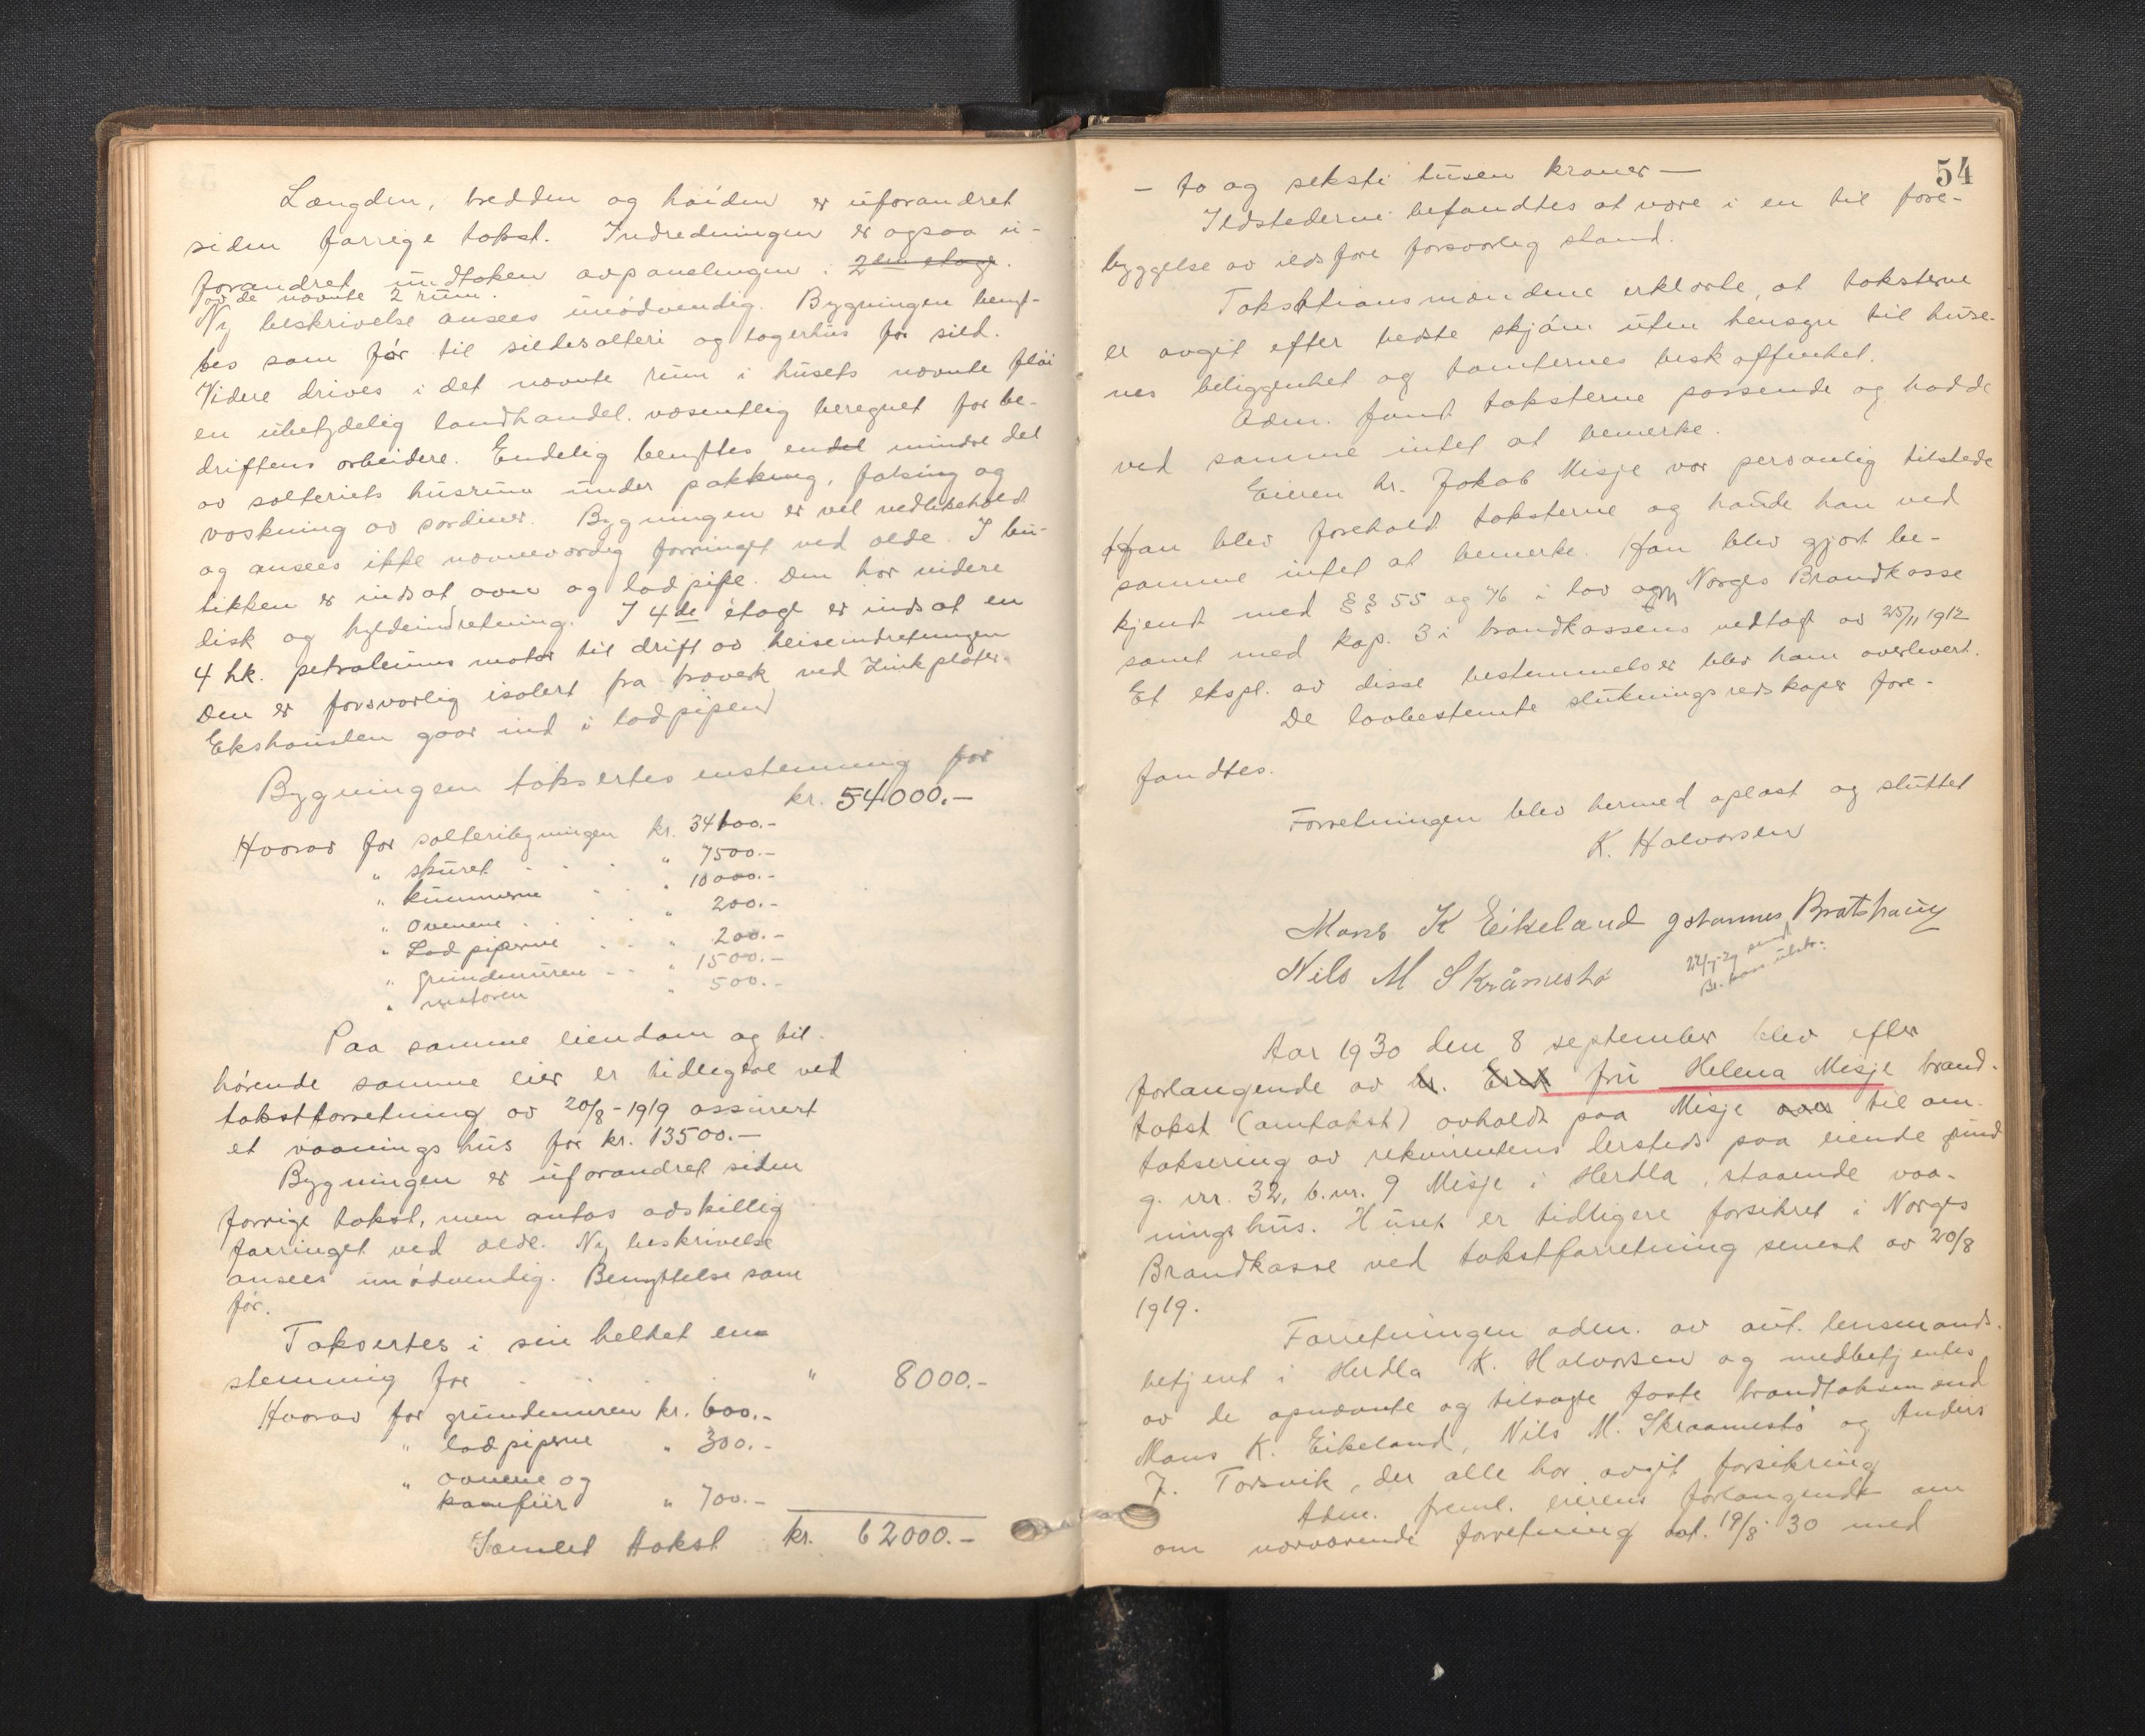 Længden, bredden og høiden er uforandret
siden forrige takst. Indredningen er ogsaa u-
forandret undtaken avpanelingen i 2den etage.
av de nævnte 2 rum.
Ny beskrivelse ansees unødvendig. Bygningen benyt-
tes som før til sildesalteri og lagerhus for sild.
Videre drives i det nævnte rum i husets nævnte fløi
en ubetydelig landhandel væsentlig beregnet for be-
driftens arbeidere. Endelig benyttes endel mindre del
av salteriets husrum under pakking, falsing og
vaskning av sardiner. Bygningen er vel vedlikeholdt
og ansees ikke nævneværdig forringet ved ælde. I bu-
tikken er indsat ovn og ladpipe. Den har videre
disk og hyldeindretning. I 4de etage er indsat en
4 hk. petroleums motor til drift av heiseindretningen
Den er forsvarlig isolert fra træverk ved Zinkplater.
Ekshausten gaar ind i ladpipen
Bygningen taksertes enstemmig for
kr. 54000.-
Hvorav for salteribygningen kr. 34100.-
" skuret . . . " 7500.-
" kummerne . . " 10000.-
" Ovenene . . . " 200.-
" Ladpiperne . . " 200.-
" grundmuren . . " 1500.-
" motoren " 500.-
Paa samme eiendom og til-
hørende samme eier er tidligere ved
takstforretning av 20/8-1919 assurert
et vaaningshus for kr. 13500.-
Bygningen er uforandret siden
forrige takst, men antas adskillig
forringet ved ælde. Ny beskrivelse
ansees unødvendig. Benyttelse som
før.
Taksertes i sin helhet en-
stemmig for . . . " 8000.-
Hvorav for grundmuren kr. 600.-
" ladpiperne " 300.-
" ovnene og
komfür " 700.-
Samlet takst kr. 62000.-
54
- to og seksti tusen kroner -
Ildstederne befandtes at være i en til fore-
byggelse av ildsfare forsvarlig stand.
Takstiansmændene erklærte, at taksterne
er avgit efter bedste skjøn uten hensyn til huse-
nes beliggenhet og tomternes beskaffenhet.
Adm. fandt taksterne passende og hadde
ved samme intet at bemerke.
Eieren hr. Jakob Misje var personlig tilstede
Han blev foreholdt taksterne og havde han ved
samme intet at bemerke. Han blev gjort be-
kjent med §§ 55 og 76 i lov om Norges Brandkasse
samt med kap. 3 i brandkassens vedtægt av 25/11 1912
Et ekspl. av disse bestemmelser blev ham overlevert.
De lovbestemte slukningsredskaper fore-
fandtes.
Forretningen blev hermed oplæst og sluttet
K. Halvorsen
Mons K Eikeland Johannes Bratshaug
Nils M Skråmestø
Aar 1930 den 8 september blev efter
forlangende av hr. fru Helena Misje brand-
takst (omtakst) avholdt paa Misje til om-
taksering av rekvirentens dersteds paa eiende grund
g. nr. 32, b. nr. 9 Misje i Herdla, staaende vaa-
ningshus. Huset er tidligere forsikret i Norges
Brandkasse ved takstforretning senest av 20/8
1919.
Forretningen adm. av aut. lensmands-
betjent i Herdla K. Halvorsen og medbetjentes
av de opnævnte og tilsagte faste brandtaksmænd
Mons K. Eikeland, Nils M. Skraamestø og Anders
J. Torsvik, der alle har avgit forsikring
Adm. freml. eierens forlangende om
om nærværende forretning dat. 19/8 30 med